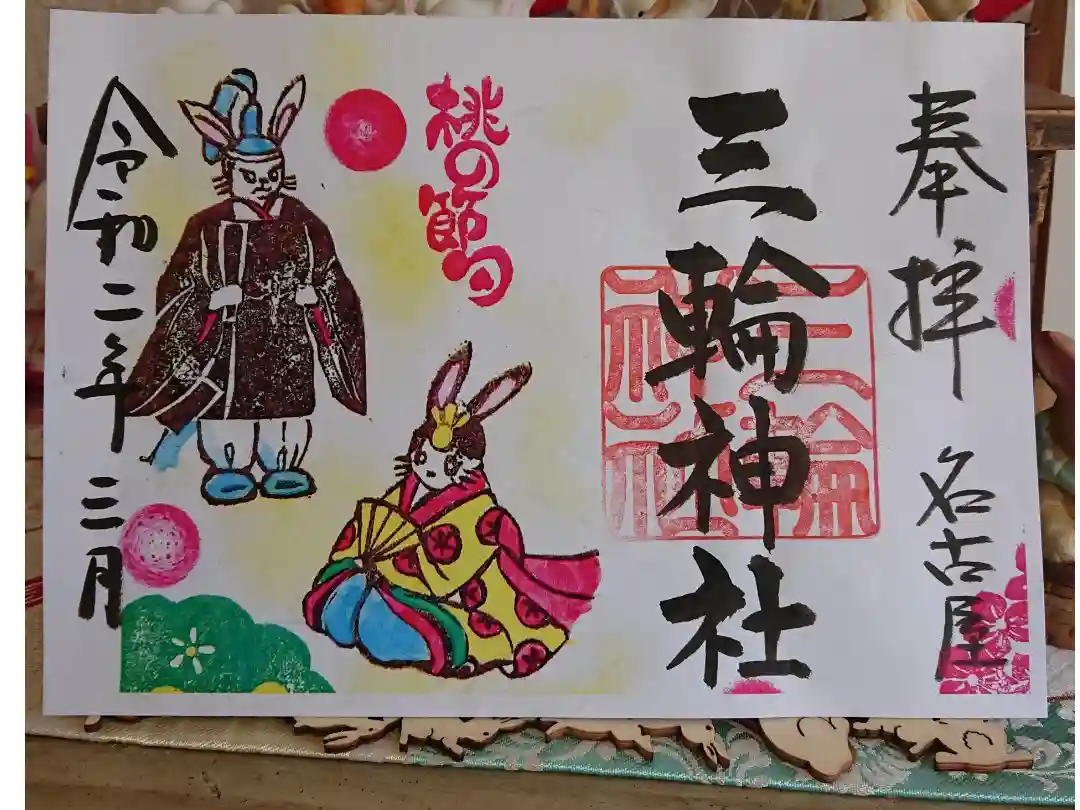 奉拝 名古屋
三輪神社
三輪神社
桃の節句
令和二年三月